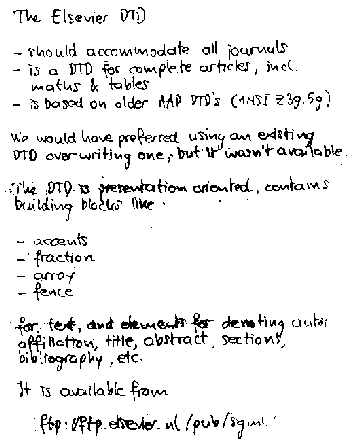 The Elsevier DTD
- should accommodate all journals
- is a DTD for complete articles, incl.
maths & tables
- is based on older AAP DTD's (ANSI Z39.59)
We would have preferred using an existing
DTD over writing one, but it wasn't available.
The DTD is presentation oriented, contains
building blocks like
- accents
- fraction
- array
- fence
for text, and elements for denoting
affiliation, title, abstract, sections,
bibliography, etc.
It is available from
ftp://ftp.elsevier.nl/pub/sgml